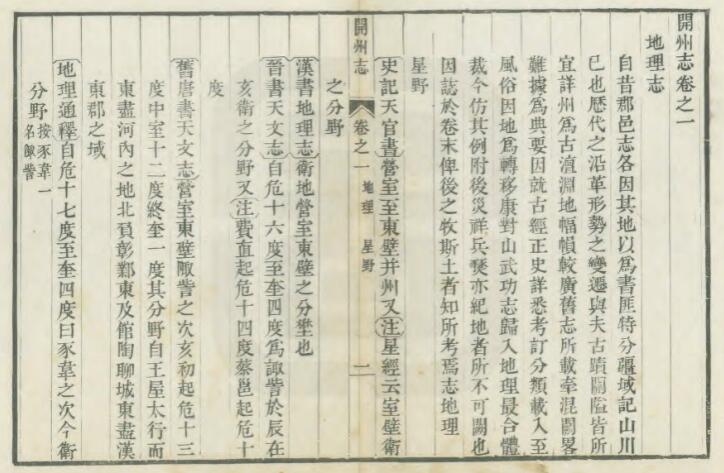 開州志卷之一
地理志
自昔郡邑志各因其地以爲書匪特分疆域記山川
已也歷代之沿革形勢之變遷與夫古蹟關隘皆所
宜詳州爲古澶淵地幅幀較廣舊志所載率混闕畧
難據爲典要因就古經正史詳悉考訂分類載入至
風俗因地爲轉移康對山武功志歸入地理最合體
裁今仿其例附後災祥兵燹亦紀地者所不可闕也
因誌於卷末俾後之牧斯土者知所考焉志地理
星野
史記天官書營室至東壁并州又注星經云室壁衛
開州志
卷之一 地理 星野
一
之分野
漢書地理志衛地營室東壁之分壄也
晉書天文志自危十六度至奎四度爲諏訾於辰在
亥衛之分野又注費直起危十四度蔡邕起危十
度
舊唐書天文志營室東壁陬訾之次亥初起危十三
度中室十二度終奎一度其分野自王屋太行而
東盡河內之地北負彰鄴東及館陶聊城東盡漢
東郡之域
地理通釋自危十七度至奎四度曰豕韋之次今衛
分野按豕韋一
名陬訾